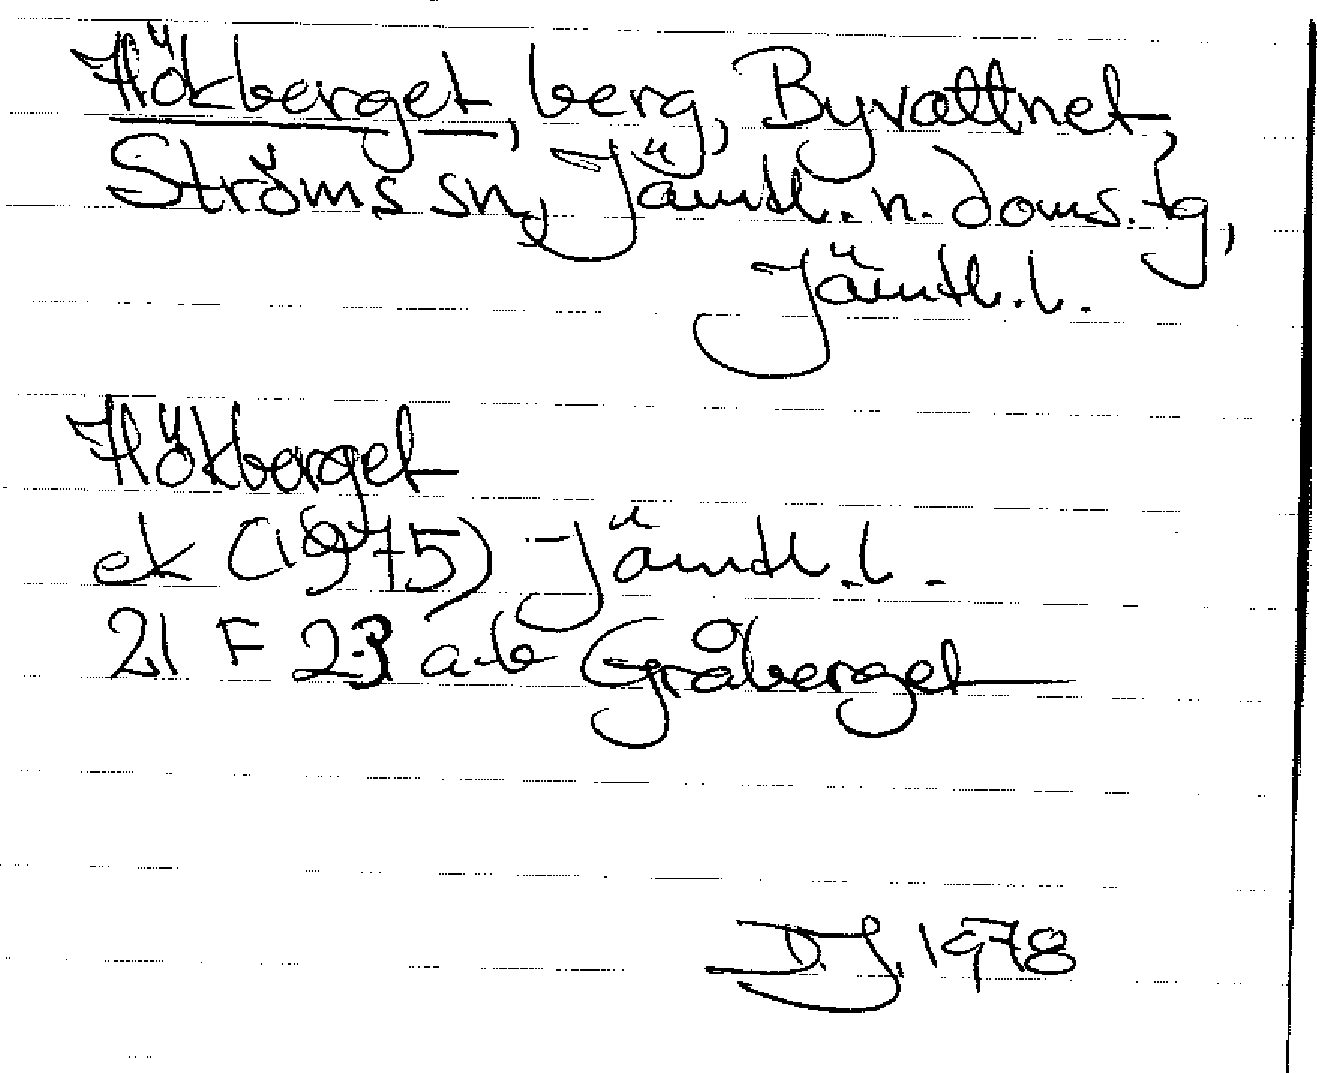 Hökberget, berg, Byvattnet,
Ströms sn, Jämtl. n. doms. tg,
Jämtl. l.
Hökberget
ek (1975) Jämtl. l.
21 F 23 a-b Gråberget
D.J. 1978